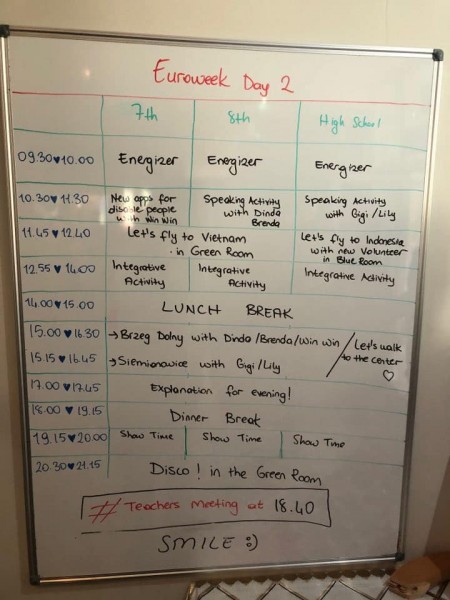 Euroweek Day 2
7th 8th High School
09.30♥10.00 Energizer Energizer Energizer
10.30♥11.30 New apps for Speaking Activity Speaking Activity
with Dinda with Gigi/Lily
people
with Win Win Brenda
11.45♥12.40 Let's fly to Vietnam Let's fly to Indonesia
in Green Room with new Volunteer
in Blue Room
12.55♥14.00 Integrative Integrative Integrative Activity
Activity Activity
14.00♥15.00 LUNCH BREAK
15.00♥16.30 →Brzeg Dolny with Dinda/Brenda/Win win / Let's walk
to the center
15.15♥16.45 →Siemianowice with Gigi/Lily ♡
17.00♥17.45 Explanation for evening!
18.00♥19.15 Dinner Break
19.15♥20.00 Show Time Show Time Show Time
20.30♥21.15 Disco! in the Green Room
# Teachers Meeting at 18.40
SMILE :)